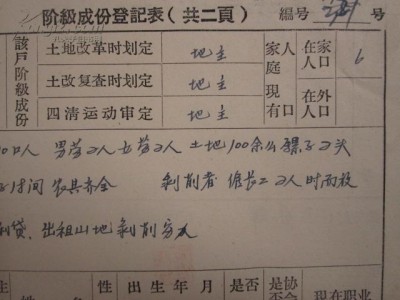 阶級成份登記表（共二頁） 編号 号
該戶阶級成份 土地改革时划定 地主 家庭現有人口 在家人口 6
土改复查时划定 地主
四清运动审定 地主 在外人口
0口人 男劳2人女劳2人 土地100余公 骡子2头
房 间 农具齐全 剥削者 僱长工2人时而救
剥贷、出租山地剥削穷人
姓 性 出生年月 是否 是协 現在职业